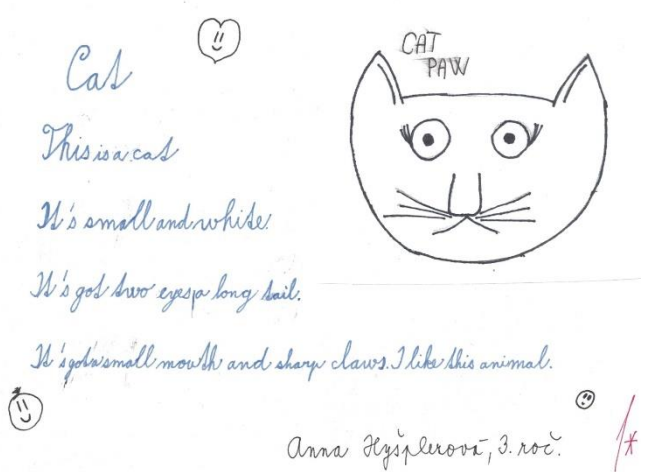 Cat
CAT
PAW
This is a cat
It's small and white.
It's got two eyes, a long tail.
It's got a small mouth and sharp claws. I like this animal.
Anna Hyšplerová, 3. roč.
1*